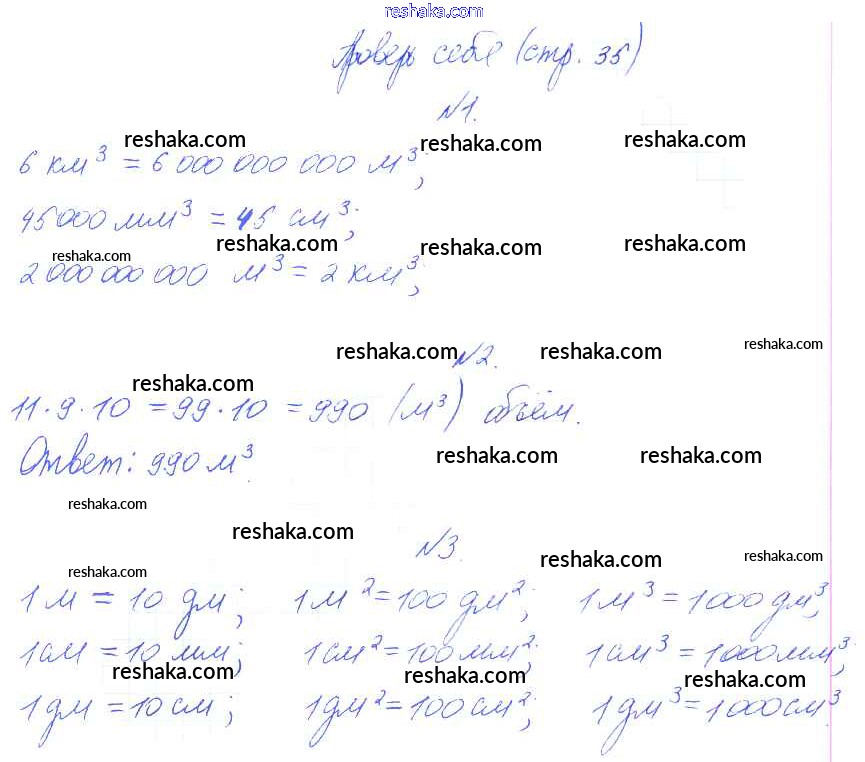 reshaka.com
Проверь себя (стр. 35)
№1.
reshaka.com reshaka.com reshaka.com
6 км³ = 6 000 000 000 м³;
45000 мм³ = 45 см³;
reshaka.com reshaka.com reshaka.com reshaka.com
2 000 000 000 м³ = 2 км³;
reshaka.com reshaka.com reshaka.com
№2.
reshaka.com
11 · 9 · 10 = 99 · 10 = 990 (м³) объём.
Ответ: 990 м³.
reshaka.com reshaka.com
reshaka.com
reshaka.com
№3.
reshaka.com reshaka.com
reshaka.com
1 м = 10 дм; 1 м² = 100 дм²; 1 м³ = 1000 дм³;
1 см = 10 мм; 1 см² = 100 мм²; 1 см³ = 1000 мм³;
reshaka.com reshaka.com reshaka.com
1 дм = 10 см; 1 дм² = 100 см²; 1 дм³ = 1000 см³.